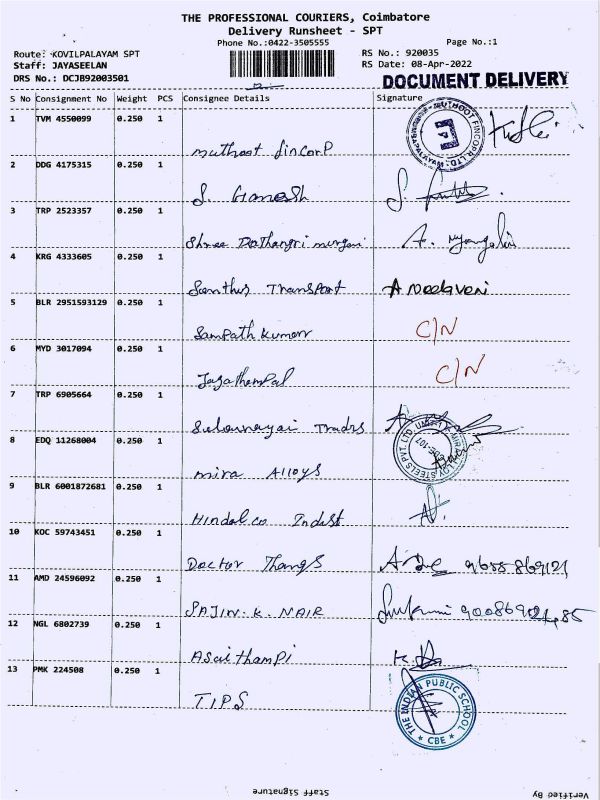 THE PROFESSIONAL COURIERS, Coimbatore
Delivery Runsheet - SPT
Phone No.:0422-3505555 Page No.:1
Route: KOVILPALAYAM SPT RS No.: 920035
Staff: JAYASEELAN RS Date: 08-Apr-2022
DRS No.: DCJB92003501 DOCUMENT DELIVERY
S No Consignment No Weight PCS Consignee Details Signature
1 TVM 4550099 0.250 1
muthoot fincorp
2 DDG 4175315 0.250 1
S. Ganesh S.
3 TRP 2523357 0.250 1
Shree A.
4 KRG 4333605 0.250 1
Santhus Transport A Neelaveni
5 BLR 2951593129 0.250 1
Sampath kumar C/N
6 MYD 3017094 0.250 1
C/N
7 TRP 6905664 0.250 1
8 EDQ 11268004 0.250 1
mira Alloys
9 BLR 6001872681 0.250 1
Hindalco Indust
10 KOC 59743451 0.250 1
Doctor Thangs
11 AMD 24596092 0.250 1
SAJIN.K.NAIR
12 NGL 6802739 0.250 1
Asaithampi
13 PMK 224508 0.250 1
TIPS THE INDIAN PUBLIC SCHOOL
CBE
Staff Signature Verified By